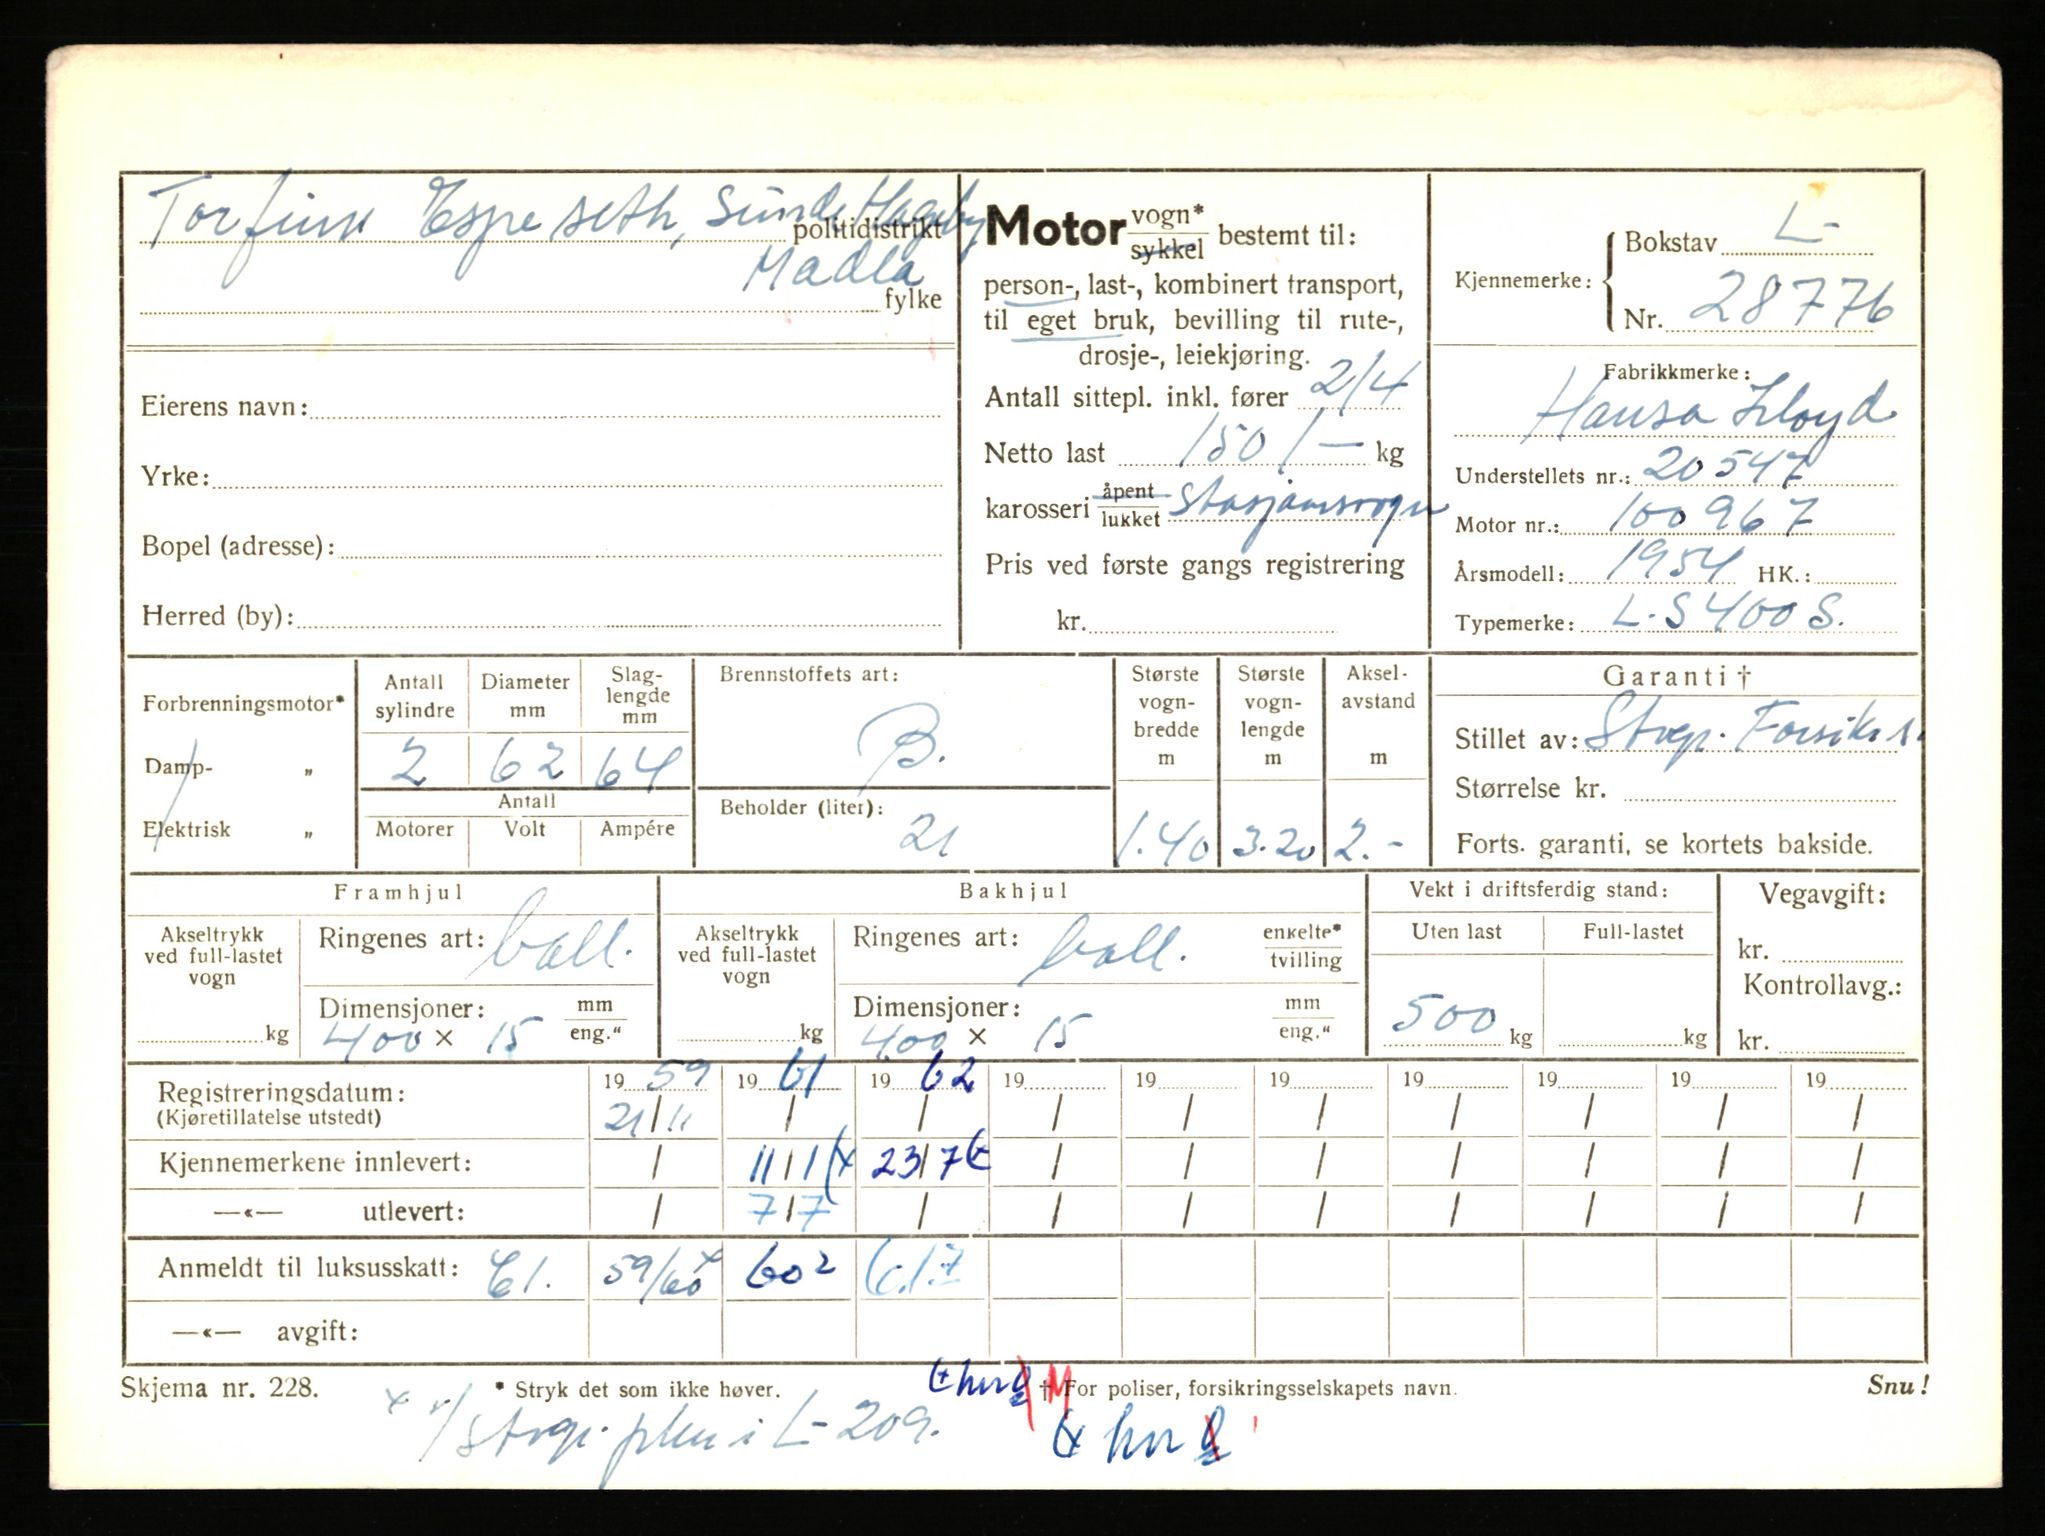 Torfinn Espeseth, Sunde Hageby
politidistrikt
Madla
fylke
Eierens navn:
Yrke:
Bopel (adresse):
Herred (by):
Motor vogn* sykkel bestemt til:
person-, last-, kombinert transport,
til eget bruk, bevilling til rute-,
drosje-, leiekjøring.
Antall sittepl. inkl. fører 2/4
Netto last 150/- kg
karosseri åpent lukket stasjonsvogn
Pris ved første gangs registrering
kr.
Kjennemerke: Bokstav L-
Nr. 28776
Fabrikkmerke:
Hansa Lloyd
Understellets nr.: 20547
Motor nr.: 100967
Årsmodell: 1954 HK.:
Typemerke: L.S400S.
Forbrenningsmotor*
Damp- "
Elektrisk "
Antall sylindre 2
Diameter mm 62
Slag-lengde mm 64
Antall
Motorer Volt Ampére
Brennstoffets art:
B.
Beholder (liter):
21
Største vogn-bredde m 1.40
Største vogn-lengde m 3.20
Aksel-avstand m 2.-
Garanti †
Stillet av: Storgr. Forsikr.
Størrelse kr.
Forts. garanti, se kortets bakside.
Framhjul
Akseltrykk ved full-lastet vogn
kg
Ringenes art: ball.
Dimensjoner: mm eng."
400 × 15
Bakhjul
Akseltrykk ved full-lastet vogn
kg
Ringenes art: ball. enkelte* tvilling
Dimensjoner: mm eng."
400 × 15
Vekt i driftsferdig stand:
Uten last Full-lastet
500 kg kg
Vegavgift:
kr.
Kontrollavg.:
kr.
Registreringsdatum: 1959 1961 1962 19 19 19 19 19 19 19
(Kjøretillatelse utstedt) 21/11 / / / / / / / / /
Kjennemerkene innlevert: / 11/1 (x 23/7 (+ / / / / / / /
—«— utlevert: / 7/7 / / / / / / / /
Anmeldt til luksusskatt: 61. 59/60 60² 61.7
—«— avgift:
Skjema nr. 228. * Stryk det som ikke høver. † For poliser, forsikringsselskapets navn. Snu!
L-209.